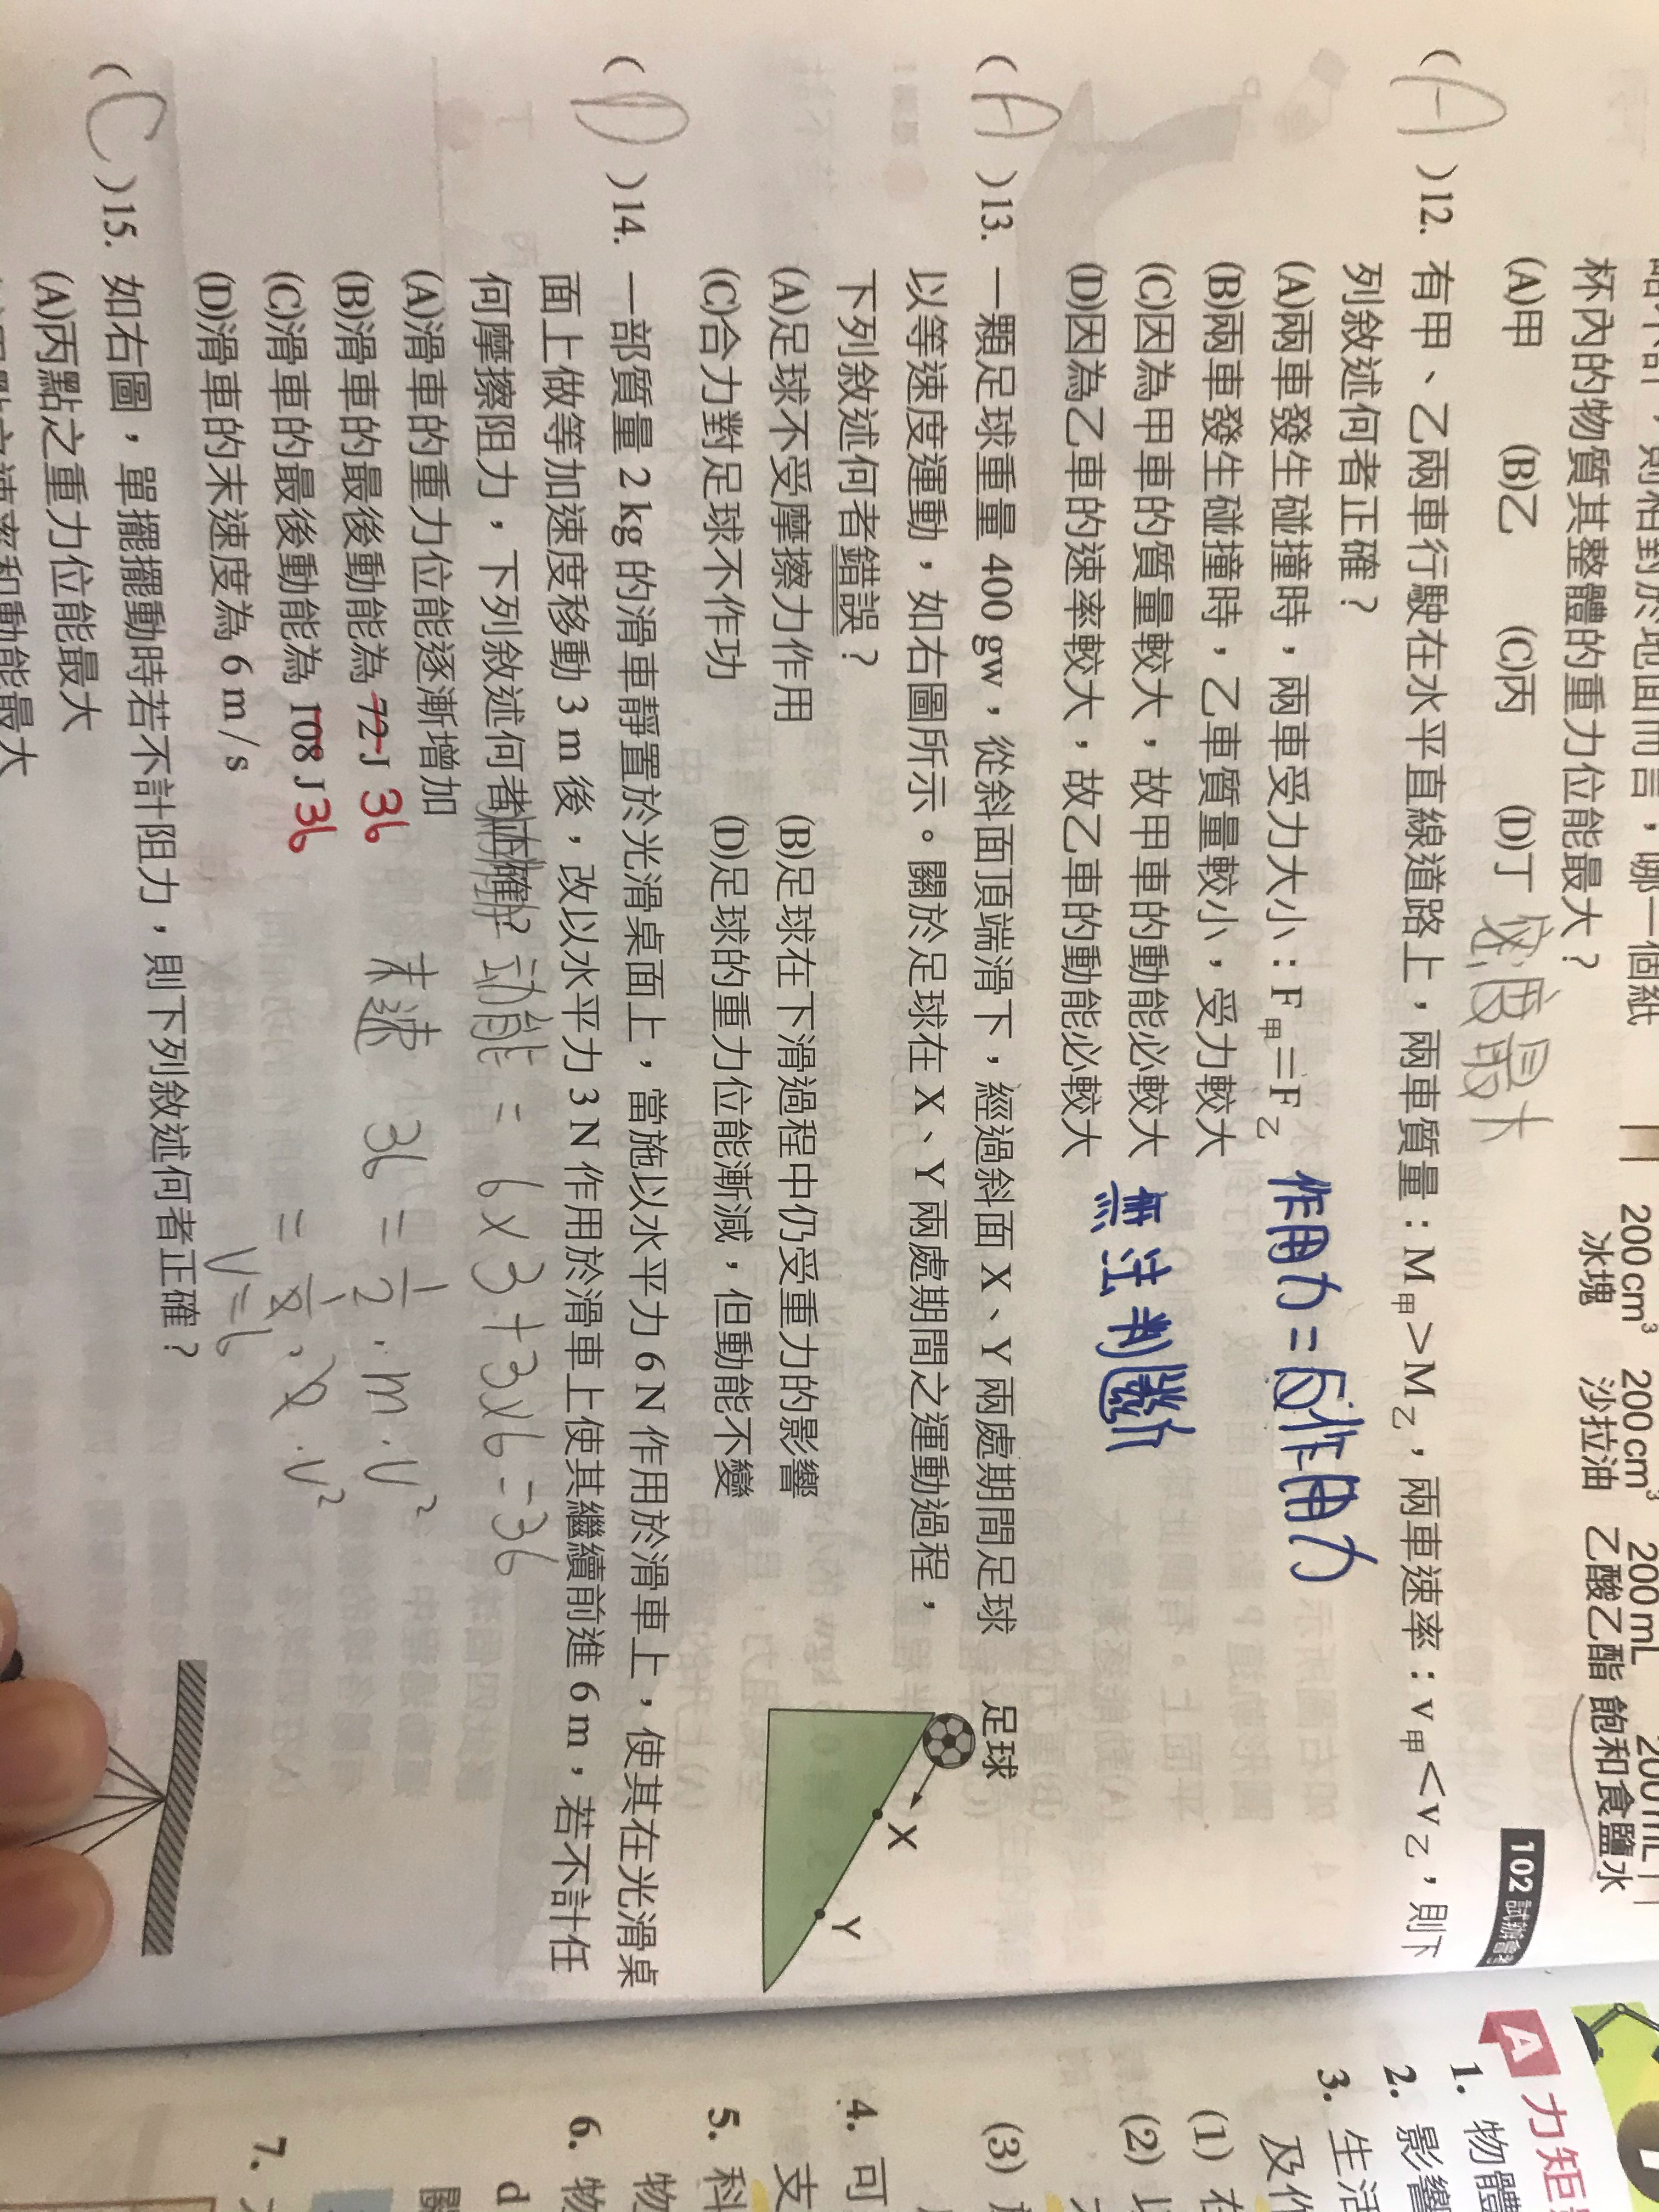 杯內的物質其整體的重力位能最大？
(A)甲 (B)乙 (C)丙 (D)丁 密度最大
200 cm³ 200 cm³ 200 mL 200 mL
冰塊 沙拉油 乙酸乙酯 飽和食鹽水
102 試辦會考
(A)12. 有甲、乙兩車行駛在水平直線道路上，兩車質量：M甲>M乙，兩車速率：v甲<v乙，則下
列敘述何者正確？
(A)兩車發生碰撞時，兩車受力大小：F甲=F乙 作用力=反作用力
(B)兩車發生碰撞時，乙車質量較小，受力較大
(C)因為甲車的質量較大，故甲車的動能必較大
(D)因為乙車的速率較大，故乙車的動能必較大
無法判斷
(A)13. 一顆足球重量 400 gw，從斜面頂端滑下，經過斜面 X、Y 兩處期間足球
以等速度運動，如右圖所示。關於足球在 X、Y 兩處期間之運動過程，
下列敘述何者錯誤？
(A)足球不受摩擦力作用 (B)足球在下滑過程中仍受重力的影響
(C)合力對足球不作功 (D)足球的重力位能漸減，但動能不變
足球
X
Y
(D)14. 一部質量 2 kg 的滑車靜置於光滑桌面上，當施以水平力 6 N 作用於滑車上，使其在光滑桌
面上做等加速度移動 3 m 後，改以水平力 3 N 作用於滑車上使其繼續前進 6 m，若不計任
何摩擦阻力，下列敘述何者正確？ 动能 = 6×3+3×6=36
(A)滑車的重力位能逐漸增加
(B)滑車的最後動能為 72 J 36
(C)滑車的最後動能為 108 J 36
(D)滑車的末速度為 6 m/s
末速 36 = 1/2 · m · v²
= 1/2 · 2 · v²
v=6
(C)15. 如右圖，單擺擺動時若不計阻力，則下列敘述何者正確？
(A)丙點之重力位能最大
A 力矩
1. 物體
2. 影響
3. 生活
及作
(1) 在
(2)
(3)
4. 可
支
5. 科
物
6. 物
d
7.